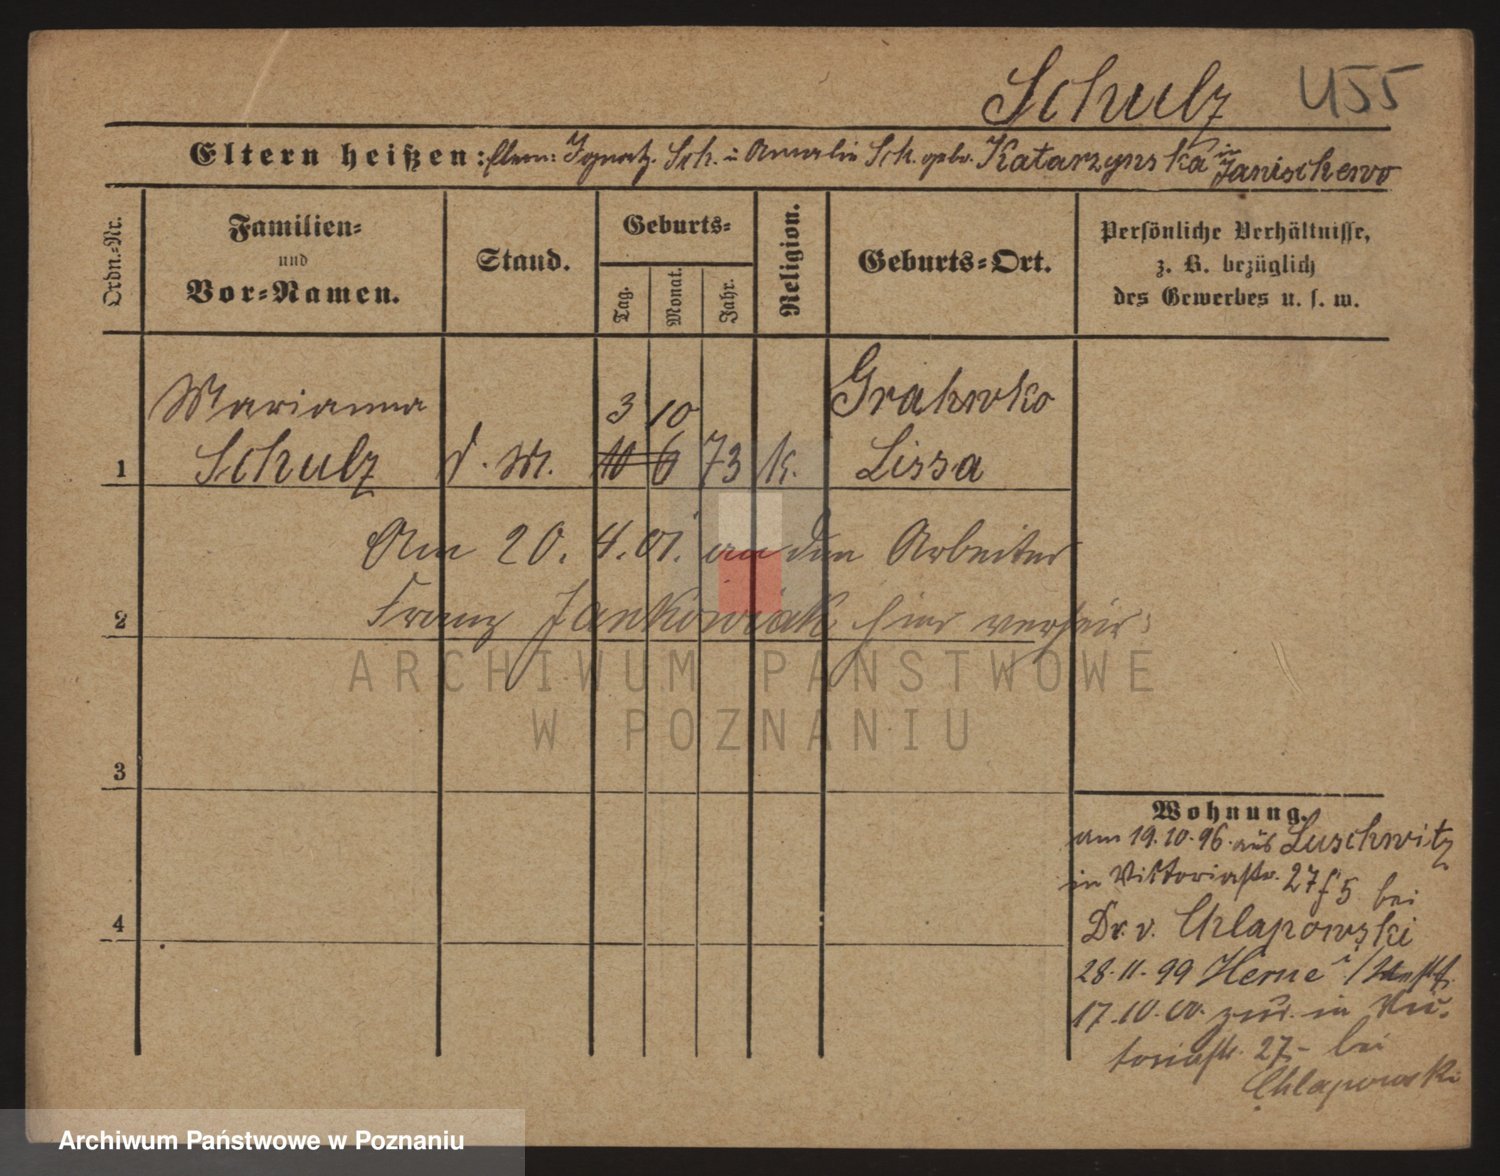 Schulz 455
Eltern heißen: Eltern: Ignatz Sch. u Amalie Sch. geb. Katarzynska in Janischewo
Ordn.-Nr.
Familien-
und
Vor-Namen.
Stand.
Geburts-
Tag.
Monat.
Jahr.
Religion.
Geburts-Ort.
Persönliche Verhältnisse,
z. B. bezüglich
des Gewerbes u. s. w.
Marianna 3 10 Grahwko
1 Schulz d. M. 10 6 73 k. Lissa
Am 20. 4. 01. an den Arbeiter
2 Franz Jankowiak hier verheir:
3
4
Wohnung.
am 19.10.96. aus Luschwitz
in Viktoriastr. 27 bei
Dr. v. Chlapowski
28.11.99 Herne i/Westf.
17.10.00. zur. in Vic-
toriastr. 27 - bei
Chlapowski
ARCHIWUM PAŃSTWOWE
W POZNANIU
Archiwum Państwowe w Poznaniu